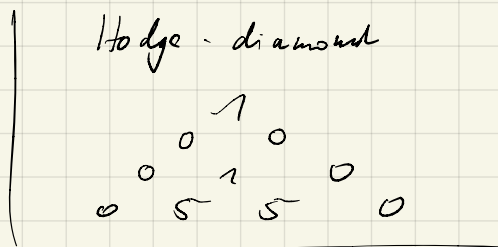 Hodge - diamond
1
0 0
0 1 0
0 5 5 0